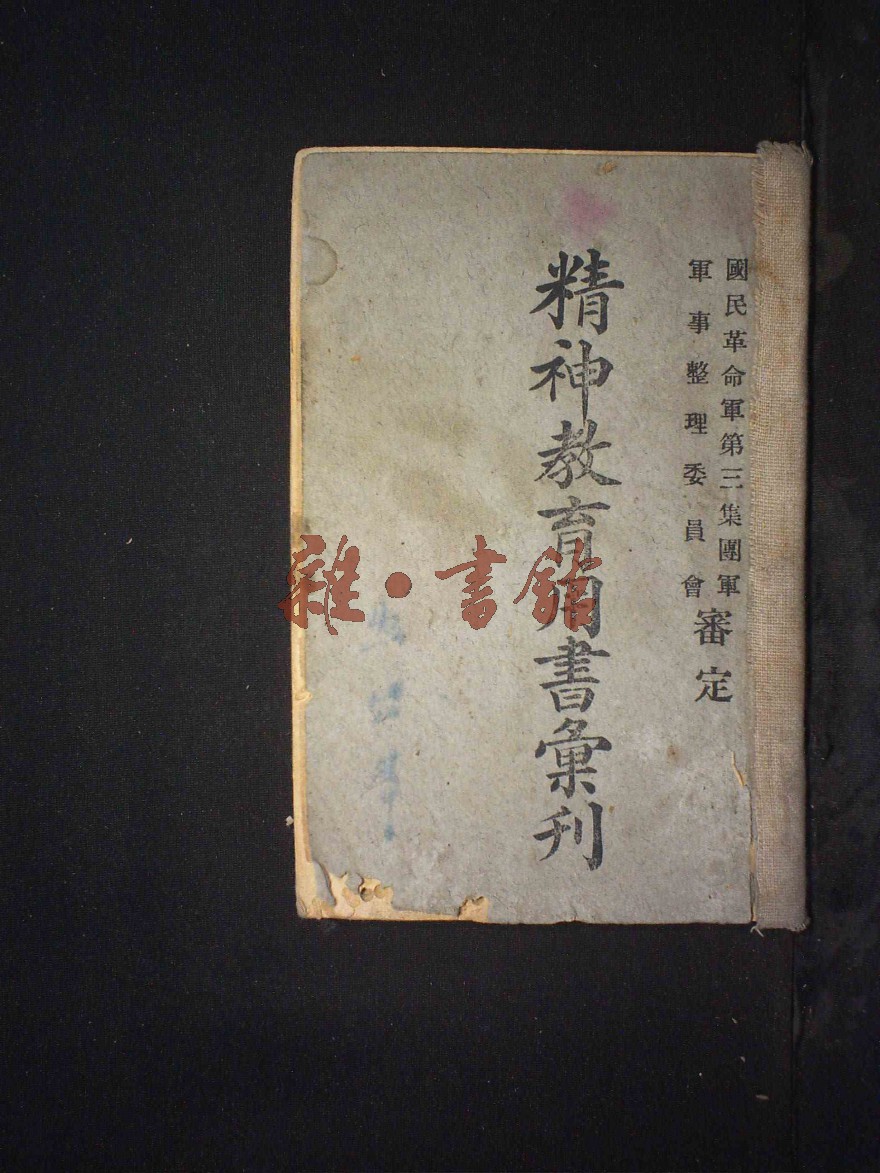 國民革命軍第三集團軍
軍事整理委員會
審定
精神教育用書彙刊
雜·書館